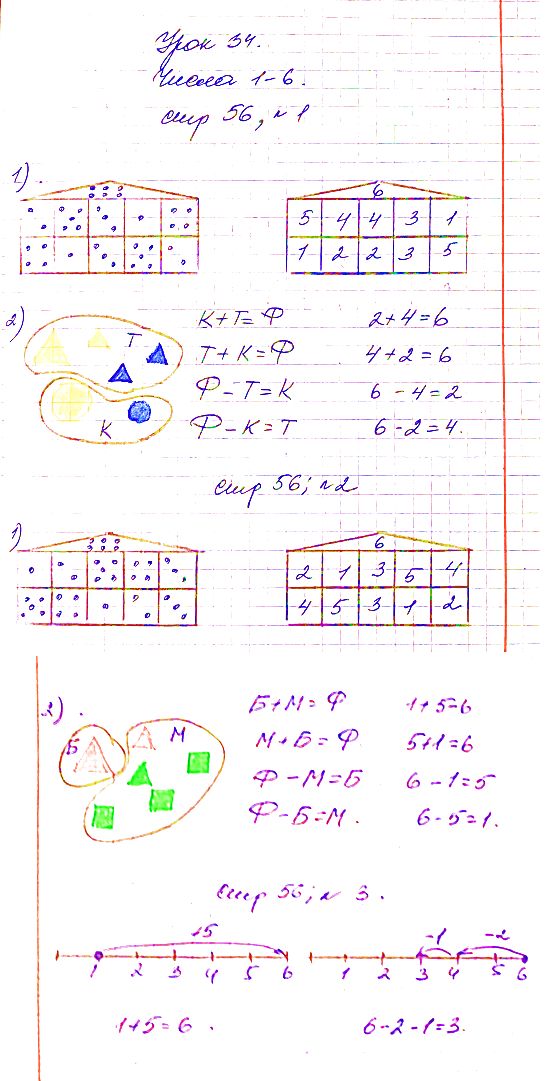 Урок 34.
Числа 1-6.
стр 56, № 1
1).
6
5 4 4 3 1
1 2 2 3 5
2)
Т
К
К+Т=Ф 2+4=6
Т+К=Ф 4+2=6
Ф-Т=К 6-4=2
Ф-К=Т 6-2=4.
стр 56; №2
1)
6
2 1 3 5 4
4 5 3 1 2
2).
Б
М
Б+М=Ф 1+5=6
М+Б=Ф 5+1=6
Ф-М=Б 6-1=5
Ф-Б=М. 6-5=1.
стр 56; № 3.
+5
1 2 3 4 5 6
-1 -2
1 2 3 4 5 6
1+5=6.
6-2-1=3.